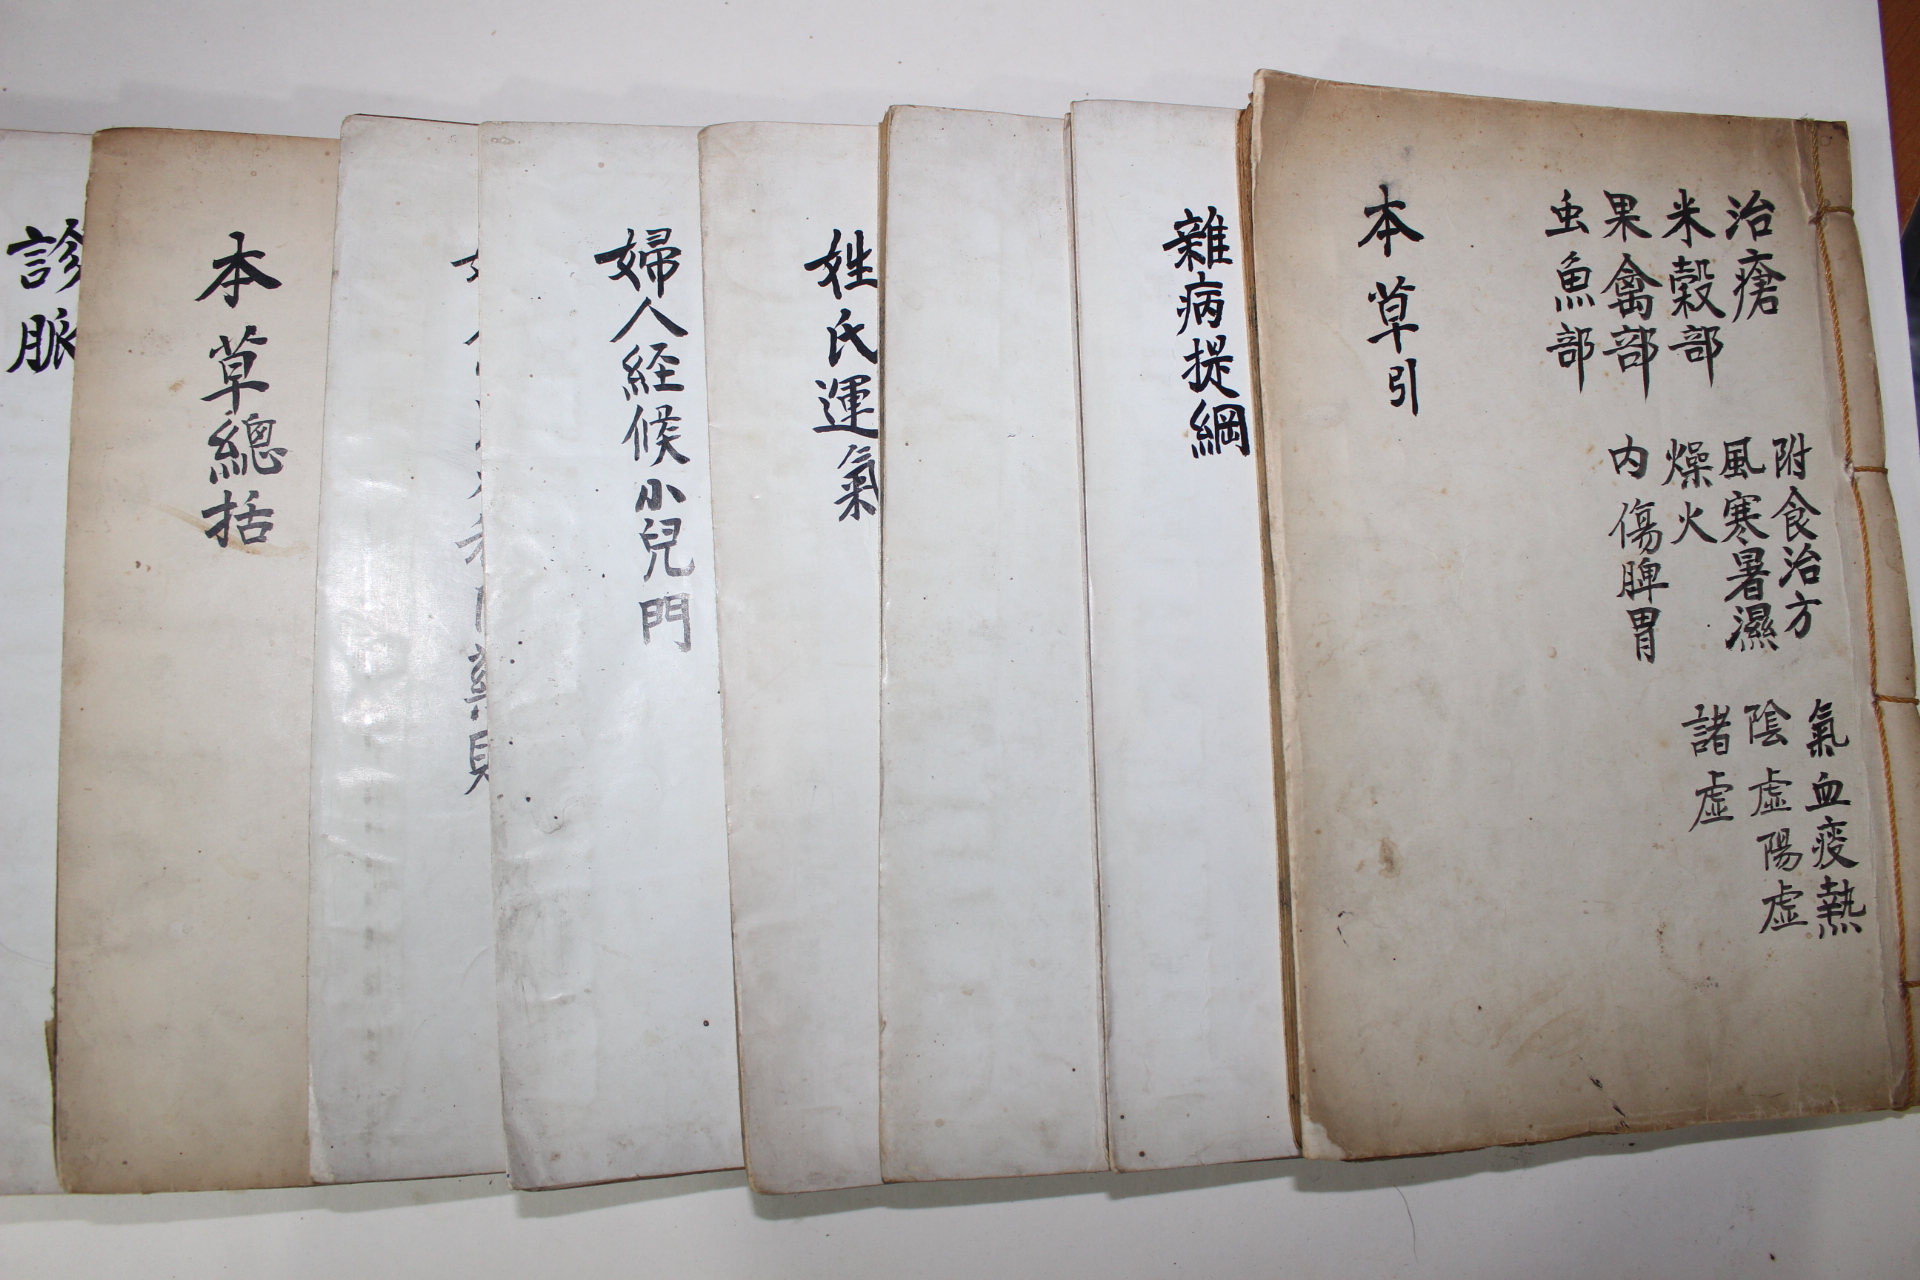 氣血痰熱
陰虛陽虛
諸虛
附食治方
風寒暑濕
燥火
內傷脾胃
治瘡
米穀部
果禽部
虫魚部
本草引
雜病提綱
姓氏運氣
婦人経候小兒門
本草總括
診脈